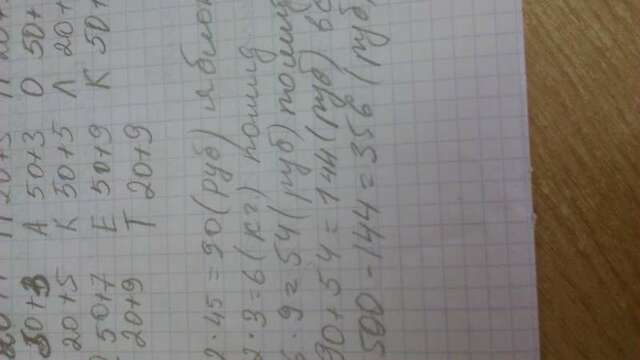 50+3 А 50+3 О 50+
20+5 К 50+5 Л 20+
50+7 Е 50+9 К 50+
20+9 Т 20+9
2·45=90(руб) яблок
2·3=6(кг.) помид
6·9=54(руб) помид
90+54=144(руб) вс
500-144=356(руб)